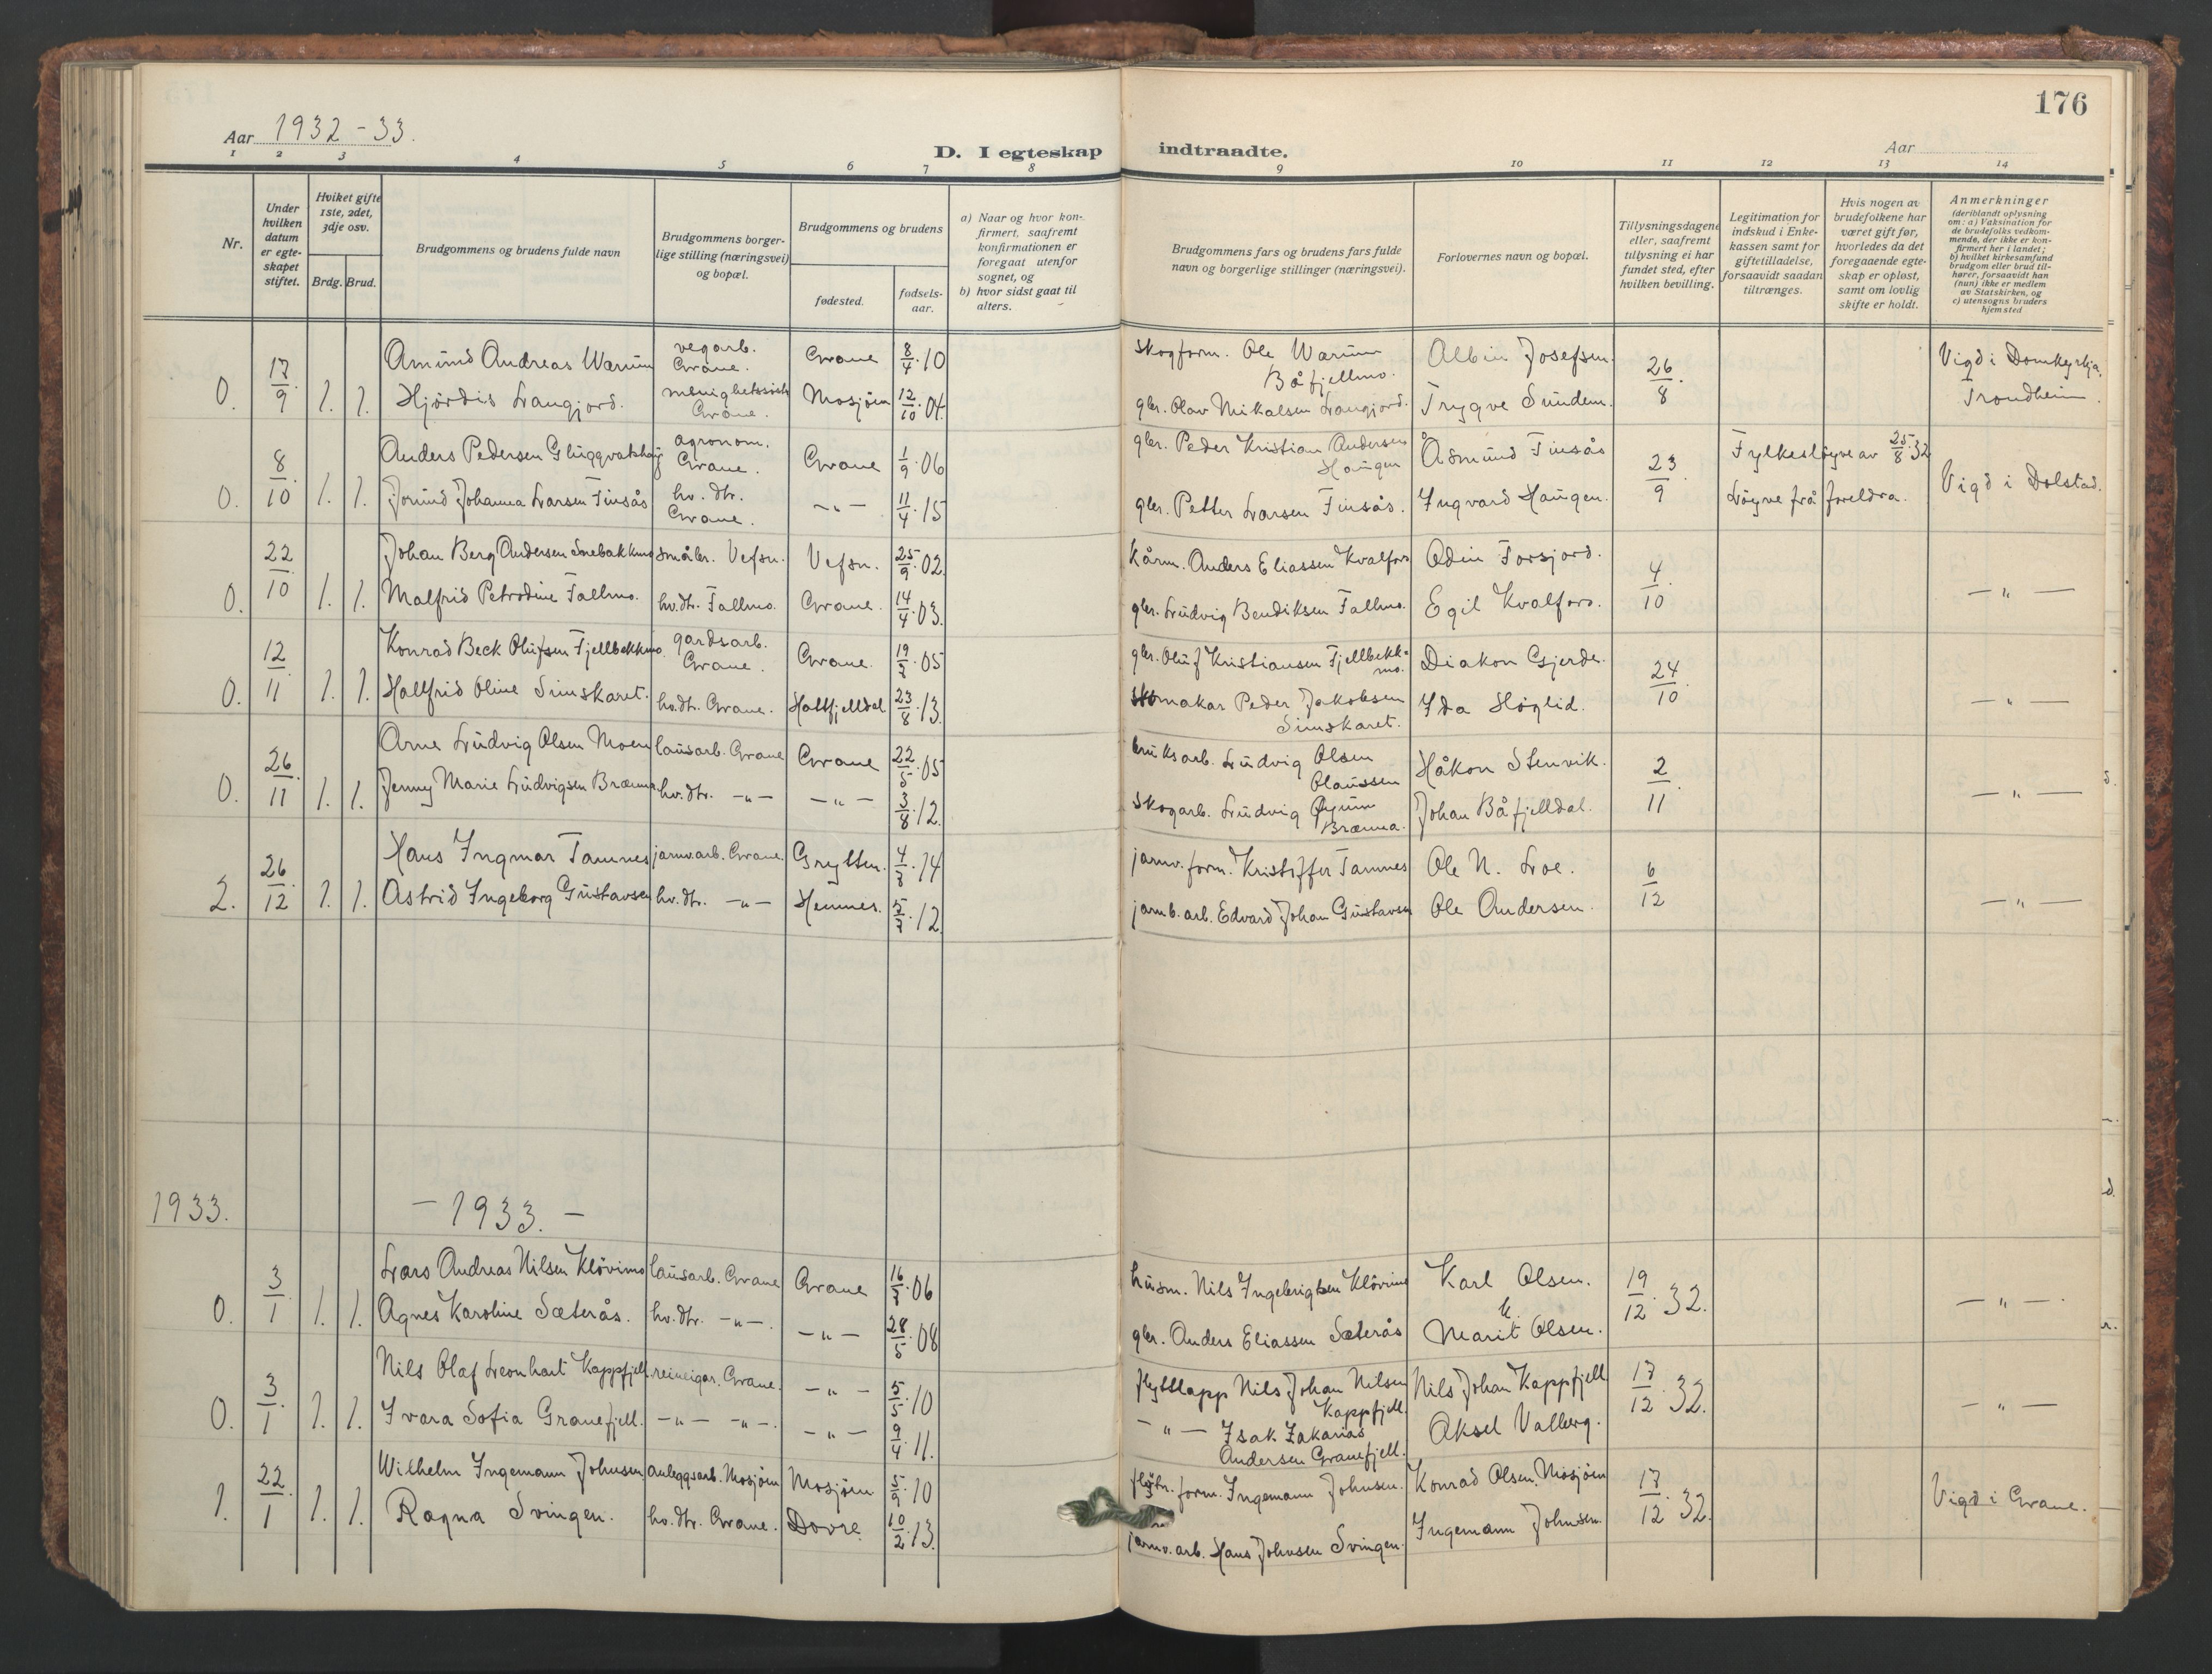 176
Aar 1932-33.
D. I egteskap indtraadte.
Aar
1 2 3 4 5 6 7 8 9 10 11 12 13 14
Nr.
Under hvilken datum er egteskapet stiftet.
Hviket gifte 1ste, 2det, 3dje osv.
Brdg. Brud.
Brudgommens og brudens fulde navn
Brudgommens borgerlige stilling (næringsvei) og bopæl.
Brudgommens og brudens
fødested.
fødselsaar.
a) Naar og hvor konfirmert, saafremt konfirmationen er foregaat utenfor sognet, og
b) hvor sidst gaat til alters.
Brudgommens fars og brudens fars fulde navn og borgerlige stillinger (næringsvei).
Forlovernes navn og bopæl.
Tillysningsdagene eller, saafremt tillysning ei har fundet sted, efter hvilken bevilling.
Legitimation for indskud i Enkekassen samt for giftetilladelse, forsaavidt saadan tiltrænges.
Hvis nogen av brudefolkene har været gift før, hvorledes da det foregaaende egteskap er opløst, samt om lovlig skifte er holdt.
Anmerkninger
(deriblandt oplysning om: a) Vaksination for de brudefolks vedkommende, der ikke er konfirmert her i landet; b) hvilket kirkesamfund brudgom eller brud tilhører, forsaavidt han (hun) ikke er medlem av Statskirken, og c) utensogns bruders hjemsted
0. 17/9. 1. 1. Amund Andreas Warum vegarb. Grane. Grane 8/4.10 skogform. Ole Warum Båfjellmo. Albin Josefsen. 26/8. Vigd i Domkyrkja, Trondheim.
Hjördis Langjord. Grane. Mosjöen 12/10.04. gbr. Olav Mikalsen Langjord. Trygve Sundem.
0. 8/10 1. 1. Anders Pedersen Gluggvatshaug agronom. Grane. Grane 1/9.06 gbr. Peder Kristian Andersen Haugen Åsmund Finsås 23/9 Fylkesløyve av 25/8.32 Vigd i Dolstad.
Jorund Johanna Larsen Finsås hv. dtr. Grane. -"- 11/4.15 gbr. Petter Larsen Finsås. Ingvard Haugen. Löyve frå foreldra.
0. 22/10 1. 1. Johan Berg Andersen Snebakkmo småbr. Vefsn. Vefsn. 25/9.02. kårm. Anders Eliassen Kvalfors Odin Forsjord. 4/10 -"-
Malfrid Petrodine Fallmo. hv. dtr. Fallmo. Grane. 14/4.03. gbr. Ludvig Bendiksen Fallmo. Egil Kvalfors.
0. 12/11 1. 1. Konrad Beck Olufsen Fjellbekkmo. gardsarb. Grane. Grane. 19/7.05 gbr. Oluf Kristiansen Fjellbekkmo. Diakon Gjerde. 24/10. -"-
Hallfrid Oline Simskaret. hv. dtr. Grane. Hattfjelldal 23/8.13. skomakar Peder Jakobsen Simskaret. Ida Høglid.
0. 26/11 1. 1. Arne Ludvig Olsen Moen lausarb. Grane Grane 22/5.05 bruksarb. Ludvig Olsen Olaussen Håkon Stenvik. 2/11 -"-
Jenny Marie Ludvigsen Brænna hv. dtr. -"- -"- 3/8.12. skogarb. Ludvig Øyum Brænna. Johan Båfjelldal.
2. 26/12 1. 1. Hans Ingmar Tamnes jarnv.arb. Grane. Grytten. 4/8.14 jarnv. form. Kristoffer Tamnes Ole N. Loe. 6/12 -"-
Astrid Ingeborg Gustavsen hv. dtr. -"- Hemnes. 5/7.12. jarnb. arb. Edvard Johan Gustavsen Ole Andersen.
1933. - 1933. -
0. 3/1 1. 1. Lars Andreas Nilsen Klövimo lausarb. Grane Grane 16/7.06 husm. Nils Ingebrigtsen Klövimo Karl Olsen. 19/12.32. -"-
Agnes Karoline Sæterås. hv. dtr. -"- -"- 28/5.08 gbr. Anders Eliassen Sæterås Marit Olsen.
0. 3/1 1. 1. Nils Olaf Leonhart Kappfjell. reineigar. Grane. -"- 5/5.10 flyttlapp Nils Johan Nilsen Kappfjell. Nils Johan Kappfjell 17/12.32. -"-
Ivara Sofia Granefjell. -"- -"- -"- 9/4.11. -"- Isak Zakarias Andersen Granefjell. Aksel Valberg.
1. 22/1 1. 1. Wilhelm Ingemann Johnsen anleggsarb. Mosjöen Mosjöen. 5/9.10 form. Ingemann Johnsen. Konrad Olsen, Mosjöen 17/12.32. Vigd i Grane.
Ragna Svingen. hv. dtr. Grane. Dovre. 10/2.13. jarnv. arb. Hans Johnsen Svingen. Ingemann Johnsen.